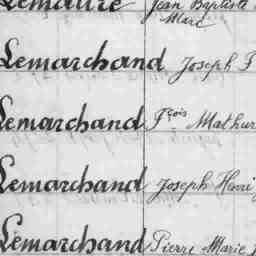 Lemaure Jean Baptiste
Marc
Lemarchand Joseph F
Lemarchand Fçois Mathur
Lemarchand Joseph Henri
Lemarchand Pierre Marie J